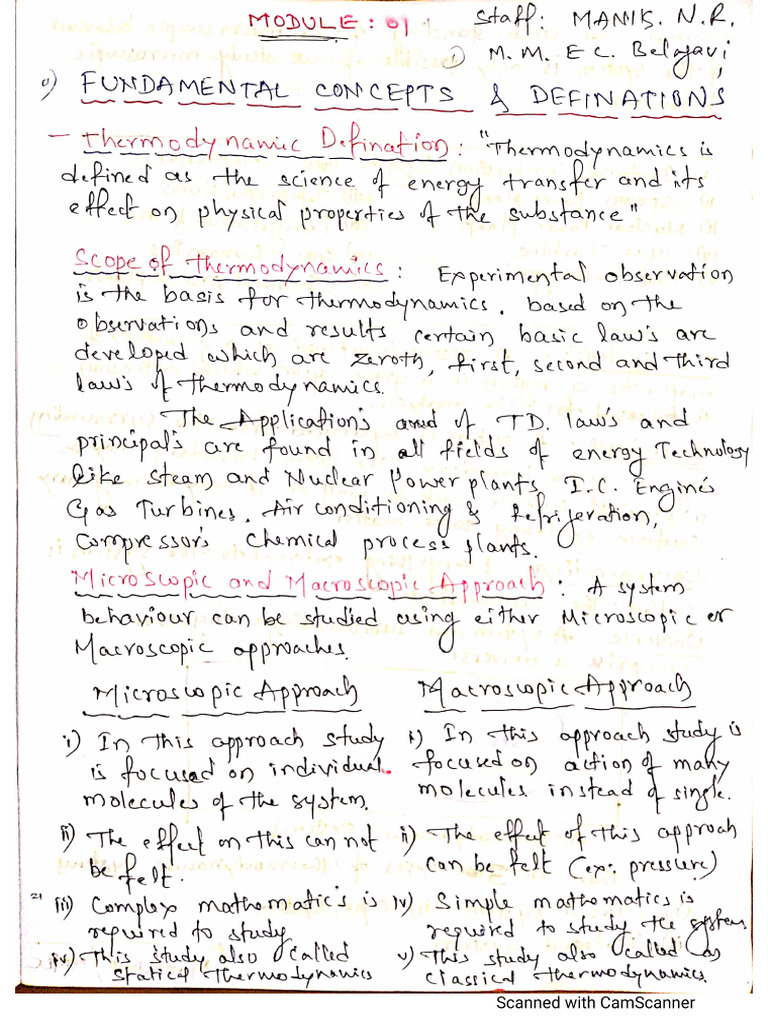 MODULE: 01
Staff: MANIK. N.R.
① M. M. E C. Belagavi
FUNDAMENTAL CONCEPTS & DEFINATIONS
- Thermodynamic Defination: "Thermodynamics is
defined as the science of energy transfer and its
effect on physical properties of the substance"
Scope of thermodynamics: Experimental observation
is the basis for thermodynamics. based on the
observations and results certain basic law's are
developed which are zeroth, first, second and third
law's of thermodynamics.
The Application's of TD. law's and
principal's are found in all fields of energy Technology
like steam and Nuclear Power plants, I.C. Engine's
Gas Turbines, Air conditioning & Refrigeration,
Compressor's Chemical process plants.
Microscopic and Macroscopic Approach: A system
behaviour can be studied using either Microscopic or
Macroscopic approaches.
Microscopic Approach
i) In this approach study
is focused on individual
molecules of the system.
ii) The effect on this can not
be felt.
iii) Complex mathematic's is
required to study
iv) This study also called
statical thermodynamics
Macroscopic Approach
i) In this approach study is
focused on action of many
molecules instead of single.
ii) The effect of this approah
can be felt (ex: pressure)
iv) Simple mathematics is
required to study the system
v) This study also called as
classical thermodynamics.
Scanned with CamScanner